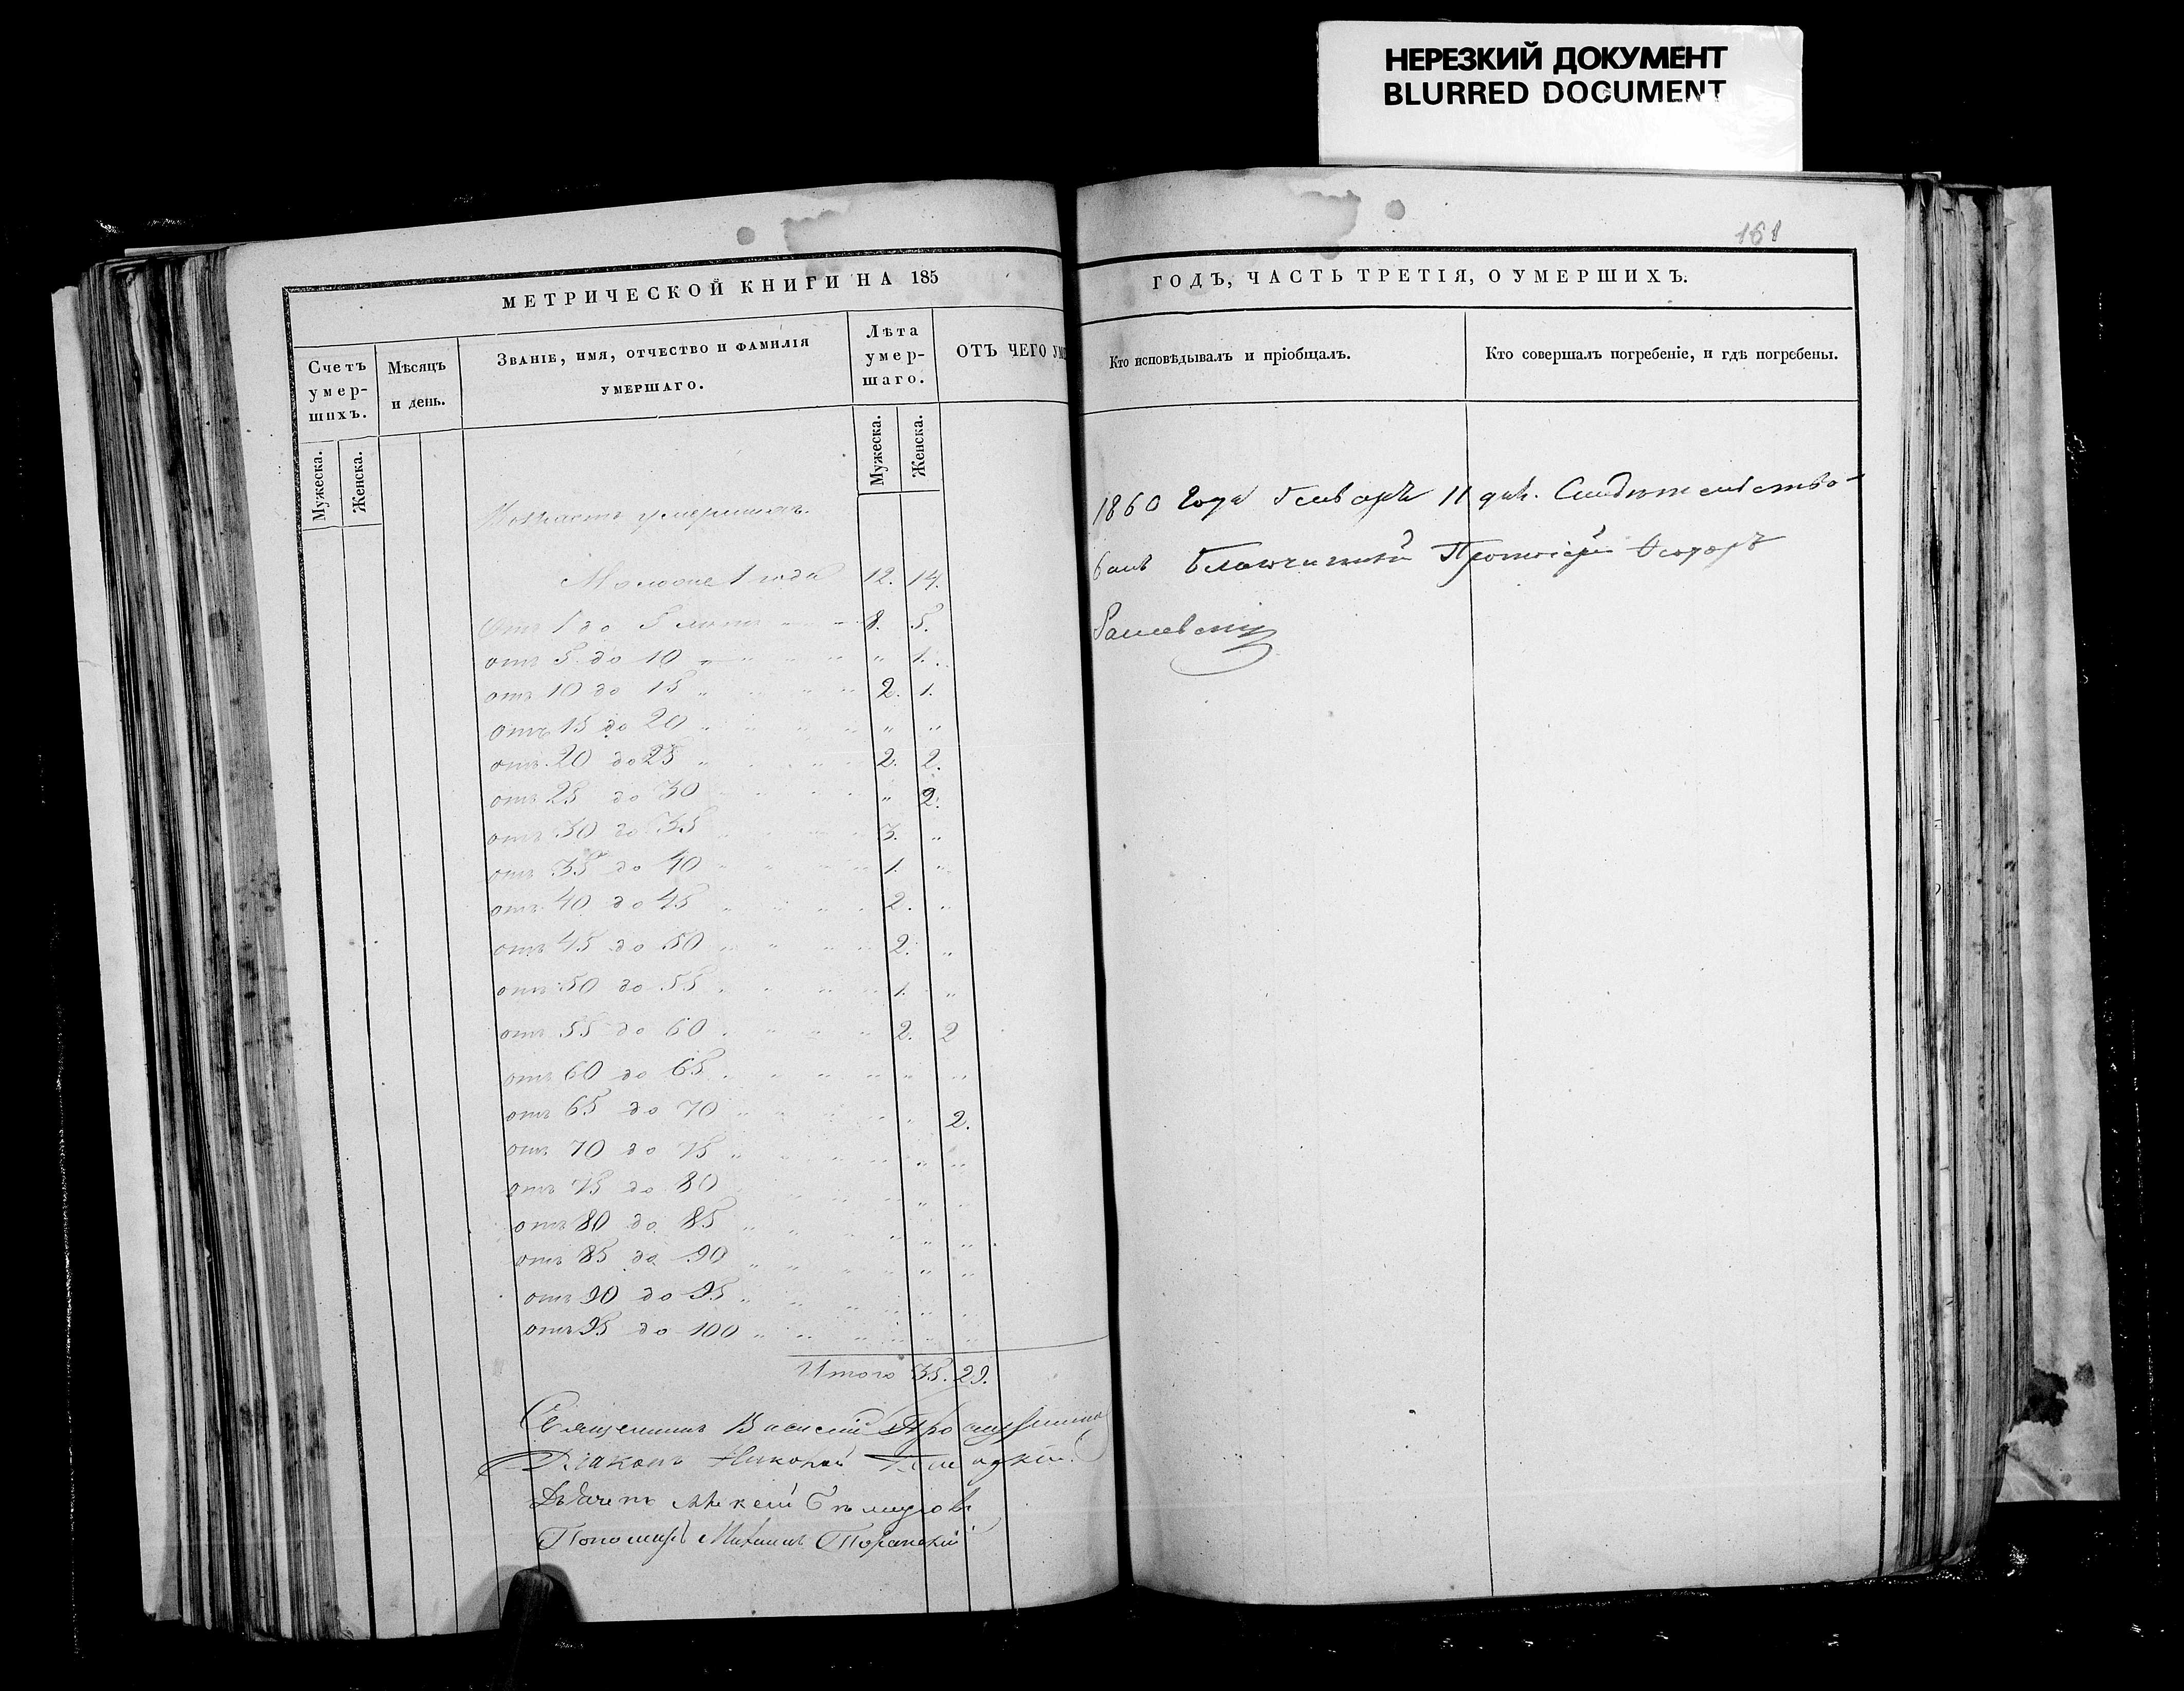 НЕРЕЗКИЙ ДОКУМЕНТ
BLURRED DOCUMENT
МЕТРИЧЕСКОЙ КНИГИ НА 185
Счетъ умер- шихъ.
Мѣсяцъ и день.
Званіе, имя, отчество и фамилія умершаго.
Лѣта умер- шаго.
ОТЪ ЧЕГО УМЕ
Мужеска.
Женска.
Мужеска.
Женска.
умершихъ.
Моложе 1 года 12. 14.
Отъ 1 до 5 лѣтъ " " 8. 5.
отъ 5 до 10 " " " " " 1.
отъ 10 до 15 " " " " 2. 1.
отъ 15 до 20 " " " " " "
отъ 20 до 25 " " " " 2. 2.
отъ 25 до 30 " " " " " 2.
отъ 30 до 35 " " " " 3. "
отъ 35 до 40 " " " " 1. "
отъ 40 до 45 " " " " 2. "
отъ 45 до 50 " " " " 2. "
отъ 50 до 55 " " " " 1. "
отъ 55 до 60 " " " " 2. 2
отъ 60 до 65 " " " " " "
отъ 65 до 70 " " " " " 2.
отъ 70 до 75 " " " " " "
отъ 75 до 80 " " " " " "
отъ 80 до 85 " " " " " "
отъ 85 до 90 " " " " " "
отъ 90 до 95 " " " " " "
отъ 95 до 100 " " " " " "
Итого 35. 29.
Священникъ Василій
Діаконъ Николай
Дьячекъ
Пономарь Михаилъ
161
ГОДЪ, ЧАСТЬ ТРЕТІЯ, О УМЕРШИХЪ.
Кто исповѣдывалъ и пріобщалъ.
Кто совершалъ погребеніе, и гдѣ погребены.
1860 года Генваря 11 дня. Свидѣтельство-
валъ Благочинный Протоіерей Ѳеодоръ